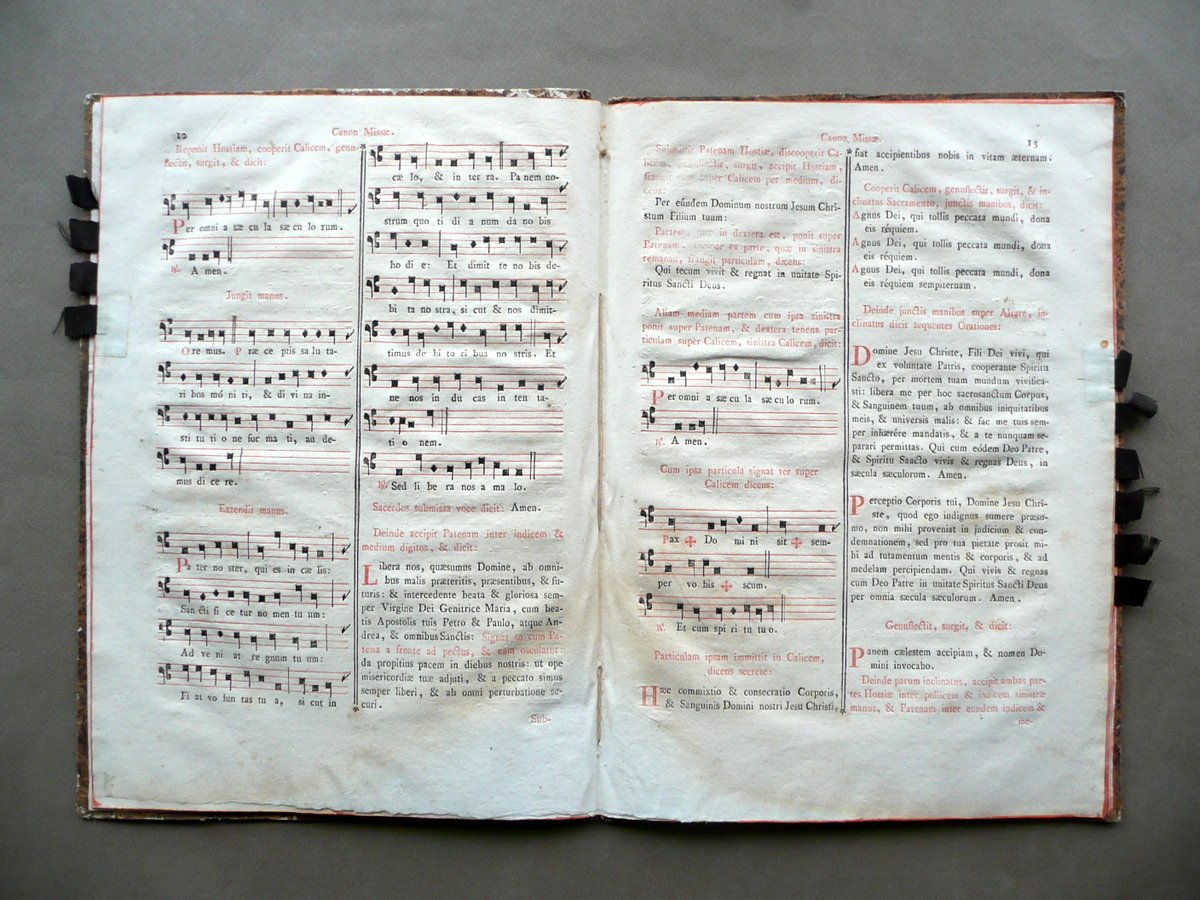 12
Canon Missæ.
Reponit Hostiam, cooperit Calicem, genu-
flectit, surgit, & dicit:
Per omni a sæ cu la sæ cu lo rum.
℟. A men.
Jungit manus.
O re mus. P ræ ce ptis sa lu ta-
ri bus mó ni ti, & di vi na in-
sti tu ti o ne for ma ti, au de-
mus di ce re.
Extendit manus.
Pa ter no ster, qui es in cæ lis:
San cti fi ce tur no men tu um:
Ad ve ni at re gnum tu um:
Fi at vo lun tas tu a, si cut in
cæ lo, & in ter ra. Pa nem no-
strum quo ti di a num da no bis
ho di e: Et dimit te no bis de-
bi ta no stra, si cut & nos dimit-
timus de bi to ri bus no stris. Et
ne nos in du cas in ten ta-
ti o nem.
℟. Sed li be ra nos a ma lo.
Sacerdos submissa voce dicit: Amen.
Deinde accipit Patenam inter indicem &
medium digitos, & dicit:
Libera nos, quæsumus Domine, ab omni-
bus malis præteritis, præsentibus, & fu-
turis: & intercedente beata & gloriosa sem-
per Virgine Dei Genitrice Maria, cum bea-
tis Apostolis tuis Petro & Paulo, atque An-
drea, & omnibus Sanctis: Signat se cum Pa-
tena a fronte ad pectus, & eam osculatur:
da propitius pacem in diebus nostris: ut ope
misericordiæ tuæ adjuti, & a peccato simus
semper liberi, & ab omni perturbatione se-
curi.
Sub-
Canon Missæ.
13
Submittit Patenam Hostiæ, discooperit Ca-
licem, genuflectit, surgit, accipit Hostiam,
frangit eam super Calicem per medium, di-
cens:
Per eúndem Dominum nostrum Jesum Chri-
stum Filium tuum:
Partem, quæ in dextera est, ponit super
Patenam. Deinde ex parte, quæ in sinistra
remansit, frangit particulam, dicens:
Qui tecum vivit & regnat in unitate Spi-
ritus Sancti Deus.
Aliam mediam partem cum ipsa sinistra
ponit super Patenam, & dextera tenens par-
ticulam super Calicem, sinistra Calicem, dicit:
Per omni a sæ cu la sæ cu lo rum.
℟. A men.
Cum ipsa particula signat ter super
Calicem dicens:
Pax ✠ Do mi ni sit ✠ sem-
per vo bis ✠ scum.
℟. Et cum spi ri tu tu o.
Particulam ipsam immittit in Calicem,
dicens secrete:
Hæc commixtio & consecratio Corporis,
& Sanguinis Domini nostri Jesu Christi,
fiat accipientibus nobis in vitam æternam.
Amen.
Cooperit Calicem, genuflectit, surgit, & in-
clinatus Sacramento, junctis manibus, dicit:
Agnus Dei, qui tollis peccata mundi, dona
eis réquiem.
Agnus Dei, qui tollis peccata mundi, dona
eis réquiem.
Agnus Dei, qui tollis peccata mundi, dona
eis réquiem sempiternam.
Deinde junctis manibus super Altare, in-
clinatus dicit sequentes Orationes:
Domine Jesu Christe, Fili Dei vivi, qui
ex voluntate Patris, cooperante Spiritu
Sancto, per mortem tuam mundum vivifica-
sti: libera me per hoc sacrosanctum Corpus,
& Sanguinem tuum, ab omnibus iniquitatibus
meis, & universis malis: & fac me tuis sem-
per inhærére mandatis, & a te nunquam se-
parari permittas. Qui cum eódem Deo Patre,
& Spiritu Sancto vivis & regnas Deus, in
sæcula sæculorum. Amen.
Perceptio Corporis tui, Domine Jesu Chri-
ste, quod ego indignus sumere præsu-
mo, non mihi proveniat in judicium & con-
demnationem, sed pro tua pietate prosit mi-
hi ad tutamentum mentis & corporis, & ad
medelam percipiendam. Qui vivis & regnas
cum Deo Patre in unitate Spiritus Sancti Deus
per omnia sæcula sæculorum. Amen.
Genuflectit, surgit, & dicit:
Panem cælestem accipiam, & nomen Do-
mini invocabo.
Deinde parum inclinatus, accipit ambas par-
tes Hostiæ inter pollicem & indicem sinistræ
manus, & Patenam inter eundem indicem &
me-